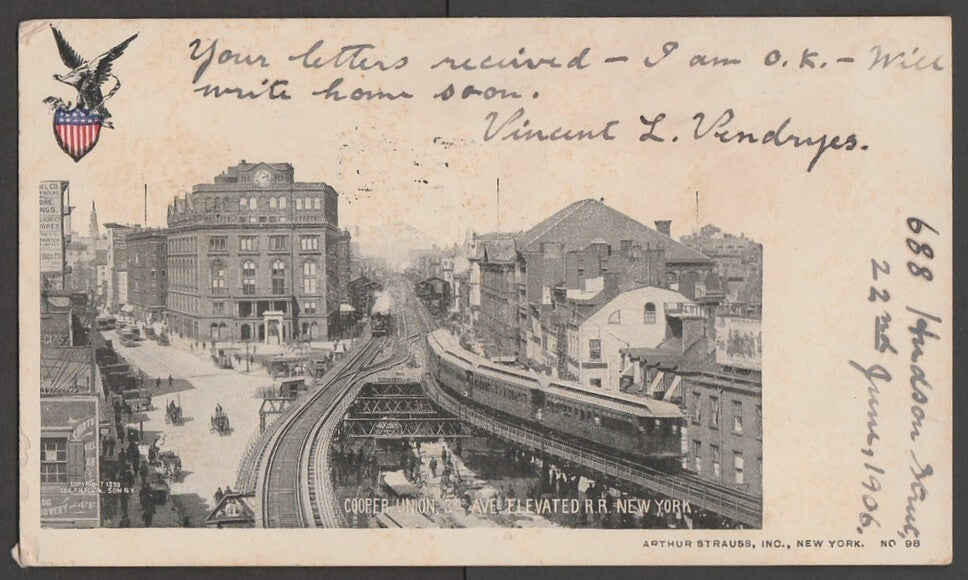 Your letters received – I am O.K. – Will
write home soon.
Vincent L. Vendryes.
688 Hudson
22nd June, 1906.
COPYRIGHT 1899
COOPER UNION, 3RD AVE ELEVATED R.R. NEW YORK
ARTHUR STRAUSS, INC., NEW YORK. NO 98